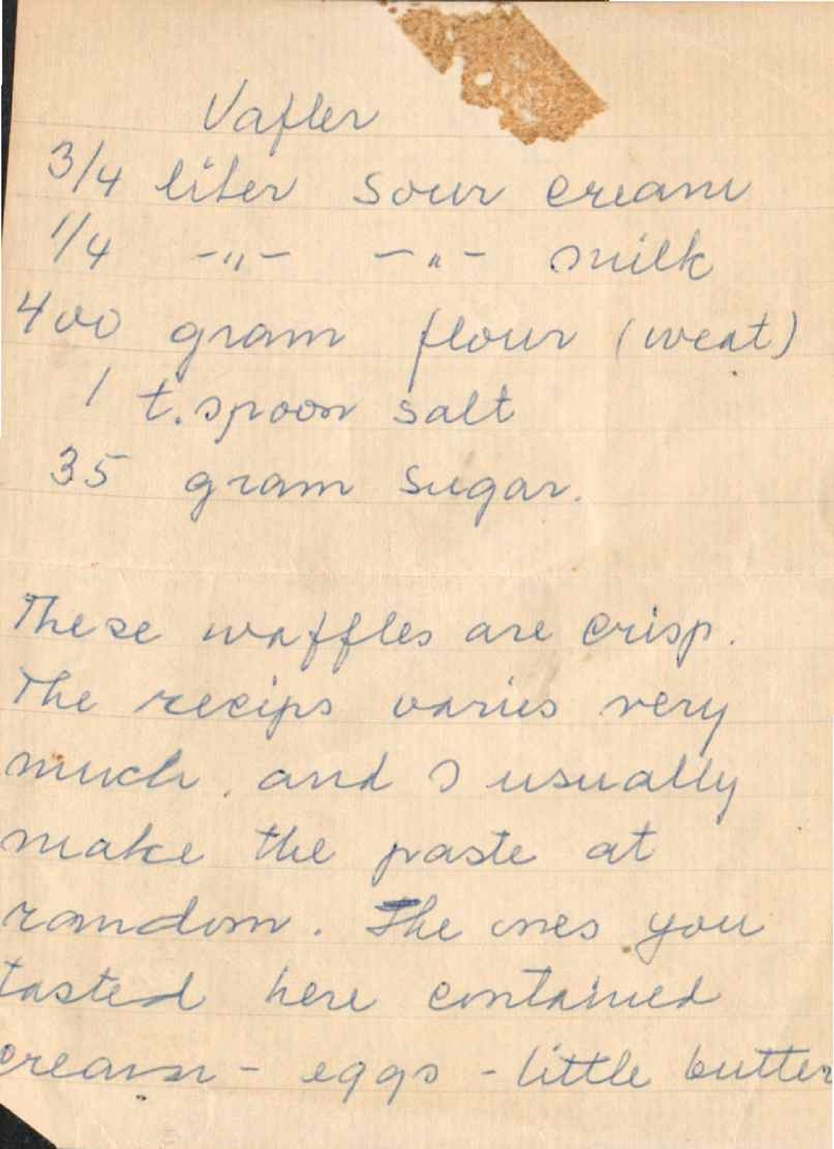 Vafler
3/4 liter sour cream
1/4 -"- -"- milk
400 gram flour (weat)
1 t.spoon salt
35 gram sugar.
These waffles are crisp.
The recips varies very
much, and I usually
make the paste at
random. The ones you
tasted here contained
cream - eggs - little butter